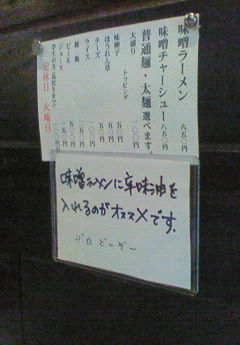 味噌ラーメン 六五〇円
味噌チャーシュー 八五〇円
普通麺・太麺 選べます。
大盛り 一〇〇円
トッピング
味卵子
ほうれん草
チーズ
ライス
豚飯
ビール
ジュース
定休日 火曜日
味噌ラーメンに辛味油を
入れるのがオススメです。
ぜひどーぞー